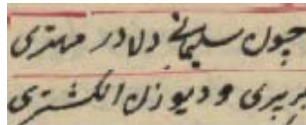 چون سلیمانی دلا در مهتری
بر پری و دیو زن انگشتری